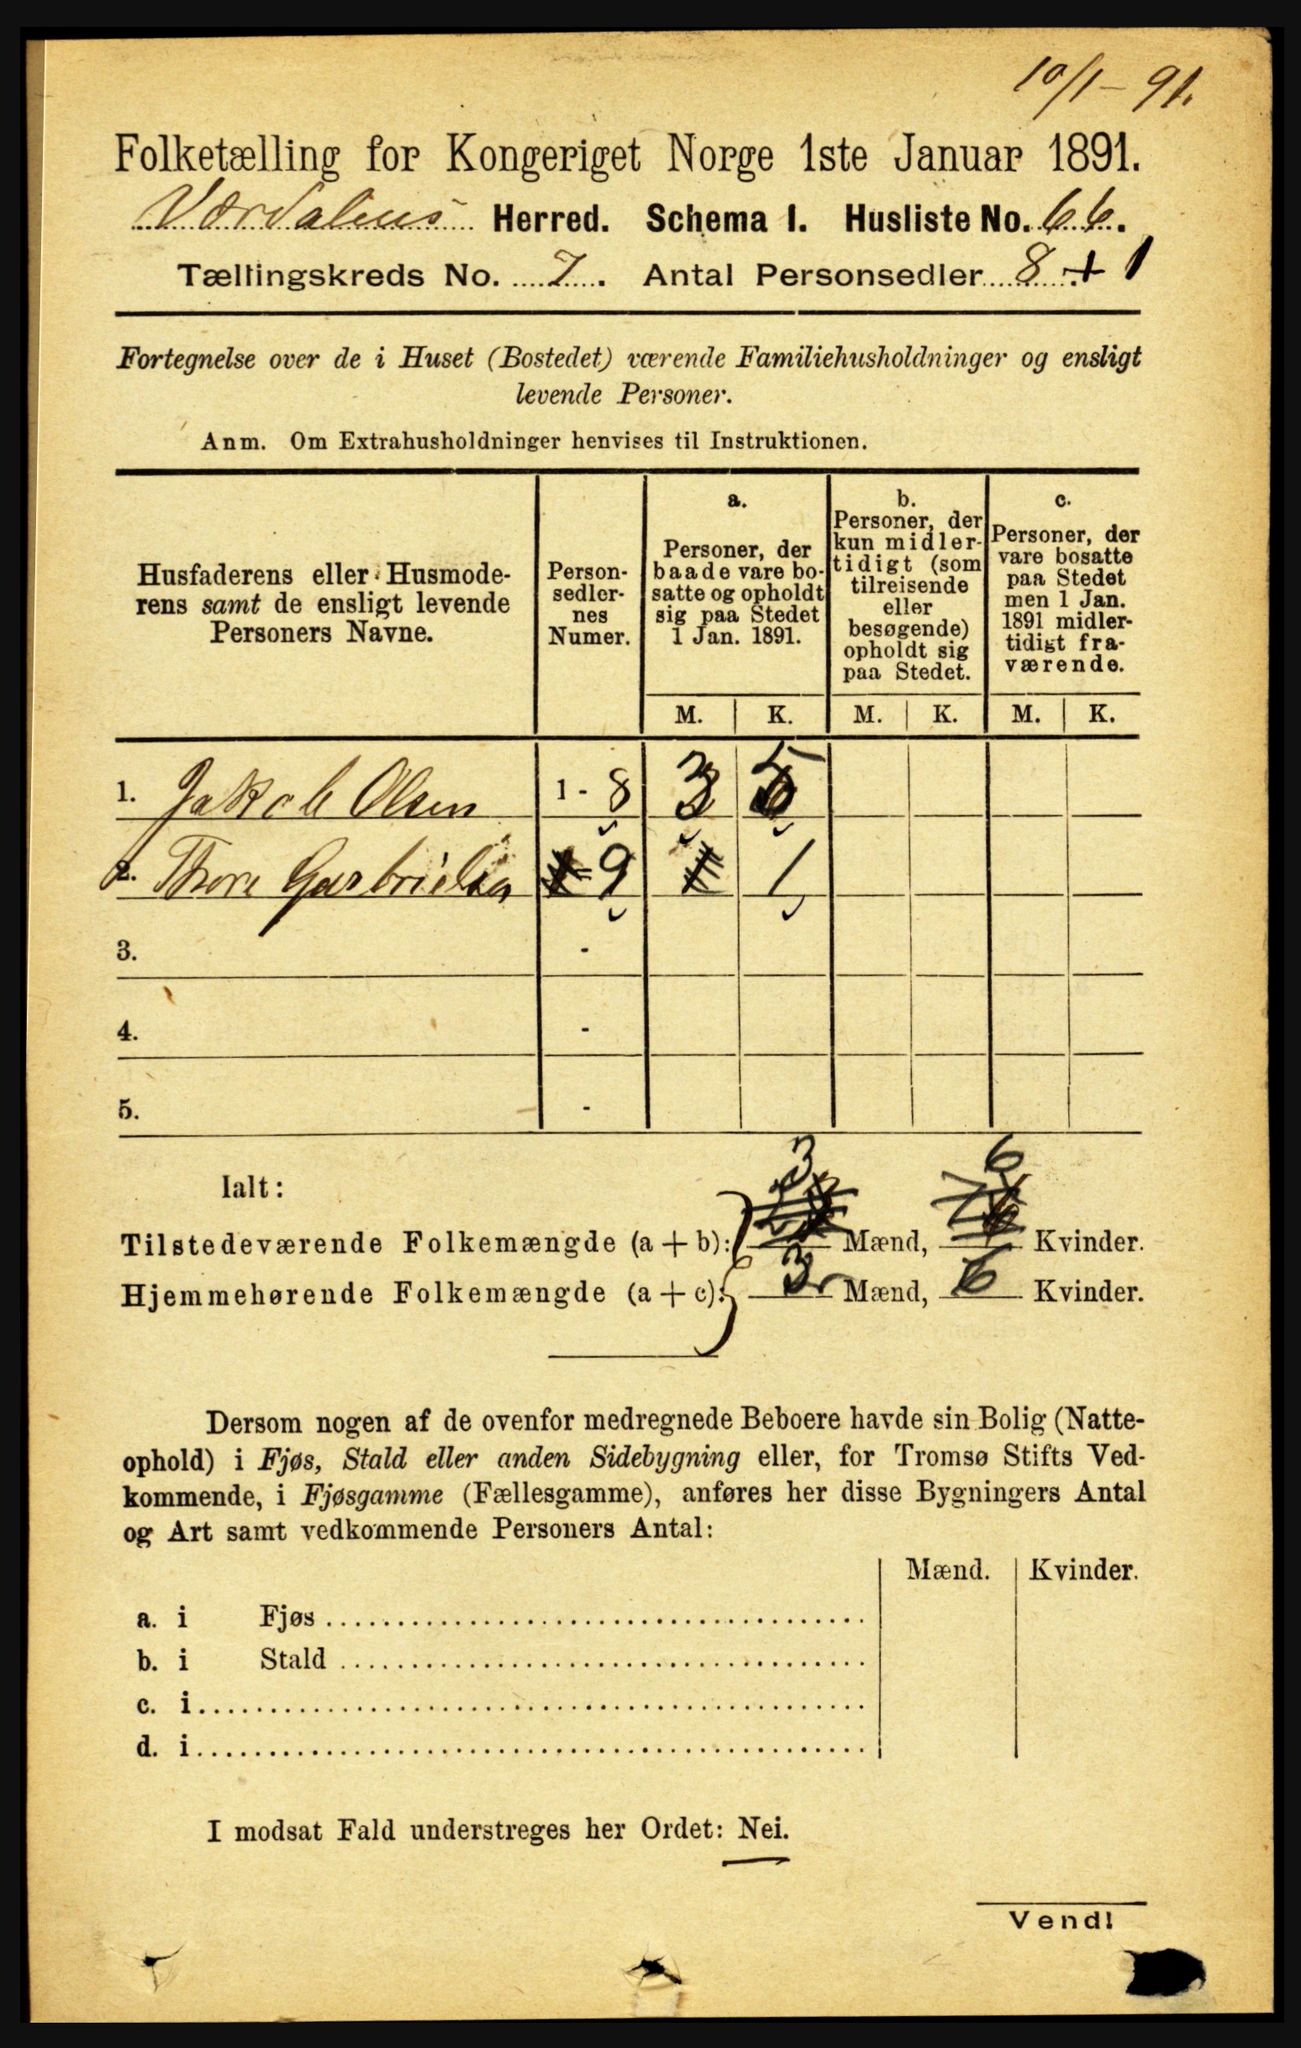 10/1 - 91.
Folketælling for Kongeriget Norge 1ste Januar 1891.
Værdalens Herred. Schema I. Husliste No. 66.
Tællingskreds No. 7. Antal Personsedler 8 + 1
Fortegnelse over de i Huset (Bostedet) værende Familiehusholdninger og ensligt
levende Personer.
Anm. Om Extrahusholdninger henvises til Instruktionen.
Husfaderens eller Husmode-
rens samt de ensligt levende
Personers Navne.
Person-
sedler-
nes
Numer.
a.
Personer, der
baade vare bo-
satte og opholdt
sig paa Stedet
1 Jan. 1891.
b.
Personer, der
kun midler-
tidigt (som
tilreisende
eller
besøgende)
opholdt sig
paa Stedet.
c.
Personer, der
vare bosatte
paa Stedet
men 1 Jan.
1891 midler-
tidigt fra-
værende.
M. K. M. K. M. K.
1. Jakob Olsen 1 - 8 3 5
2. 9 1
3. -
4. -
5. -
3 6
Ialt:
Tilstedeværende Folkemængde (a + b): Mænd, Kvinder.
Hjemmehørende Folkemængde (a + c): 3 Mænd, 6 Kvinder.
Dersom nogen af de ovenfor medregnede Beboere havde sin Bolig (Natte-
ophold) i Fjøs, Stald eller anden Sidebygning eller, for Tromsø Stifts Ved-
kommende, i Fjøsgamme (Fællesgamme), anføres her disse Bygningers Antal
og Art samt vedkommende Personers Antal:
Mænd. Kvinder.
a. i Fjøs
b. i Stald
c. i
d. i
I modsat Fald understreges her Ordet: Nei.
Vend!